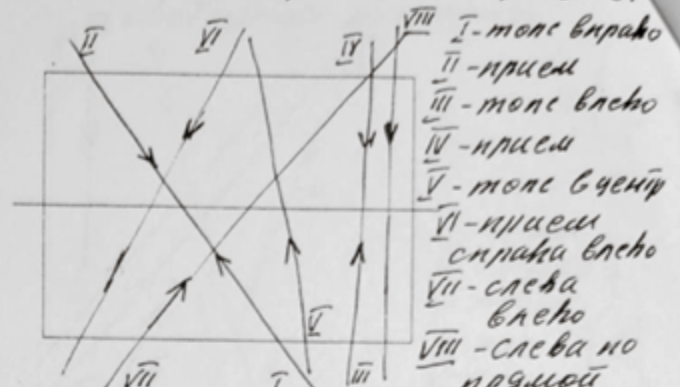 II
VI
IV
VIII
V
VII
I
III
I - топс вправо
II - прием
III - топс влево
IV - прием
V - топс в центр
VI - прием
справа влево
VII - слева
влево
VIII - слева по
прямой